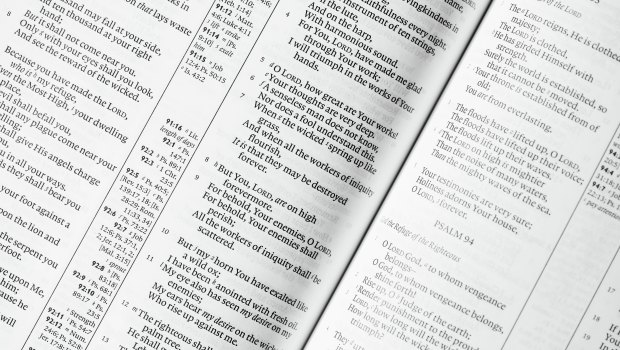 and may fall at your side,
ten thousand at your right
hand;
But it shall not come near you.
Only with your eyes shall you look,
And see the reward of the wicked.
Because you have made the LORD,
my refuge,
the Most High, your dwelling
place,
evil shall befall you,
shall any plague come near your
dwelling;
shall give His angels charge
in all your ways.
they shall bear you
your foot against a
upon the lion and
the serpent you
underfoot.
upon Me,
him;
because he
will
that lays waste
91:12
4:6; Luke 4:11
91:13
91:14
9:10
exalt
him
91:15
12:4; Ps. 50:15
Is. 43:2
91:16 Lit.
length of days
92:1 Ps.
147:1
92:2 Ps. 89:1
92:3 1 Chr.
23:5
92:5 Ps. 40:5
[Rev. 15:3] Ps.
139:17, 18; [Is.
28:29; Rom.
11:33, 34]
92:6 Ps. 73:22
92:7 Job
12:6; Ps. 37:1,
2; Jer. 12:1, 2;
[Mal. 3:15]
sprout
92:8 [Ps.
83:18]
92:9 Ps. 68:1
92:10 Ps.
89:17
23:5
92:11 Ps. 54:7
Strength
92:12 Num.
24:6; Ps. 52:8;
Jer. 17:8;
lovingkindness in
faithfulness every night.
3 instrument of ten strings,
And on the harp,
With harmonious sound.
4 For You, LORD, have made me glad
through Your work;
I will triumph in the works of Your
hands.
5 O LORD, how great are Your works!
Your thoughts are very deep.
6 A senseless man does not know,
Nor does a fool understand this.
7 When the wicked spring up like
grass,
And when all the workers of iniquity
flourish,
It is that they may be destroyed
forever.
8 But You, LORD, are on high
forevermore.
9 For behold, Your enemies, O LORD,
For behold, Your enemies shall
perish;
All the workers of iniquity shall be
scattered.
10 But my horn You have exalted like
a wild ox;
I have been anointed with fresh oil.
11 My eye also has seen my desire on my
enemies;
My ears hear my desire on the wicked
Who rise up against me.
12 The righteous shall
palm tree,
He shall
of the LORD
The LORD reigns, He is clothed
majesty;
The LORD is clothed,
He has girded Himself with
strength.
Surely the world is established, so
that it cannot be moved.
2 Your throne is established from of
old;
You are from everlasting.
3 The floods have lifted up, O LORD,
The floods have lifted up their voice;
The floods lift up their waves.
4 The LORD on high is mightier
Than the noise of many waters,
Than the mighty waves of the sea.
5 Your testimonies are very sure;
Holiness adorns Your house,
O LORD, forever.
PSALM 94
Refuge of the Righteous
O LORD God, to whom vengeance
belongs—
O God, to whom vengeance belongs,
shine forth!
2 Rise up, O Judge of the earth;
Render punishment to the proud.
3 LORD, how long will the wicked,
How long will the wicked
triumph?
4 They
94:1
94:2
94:4
94:7 Job
17
18
If